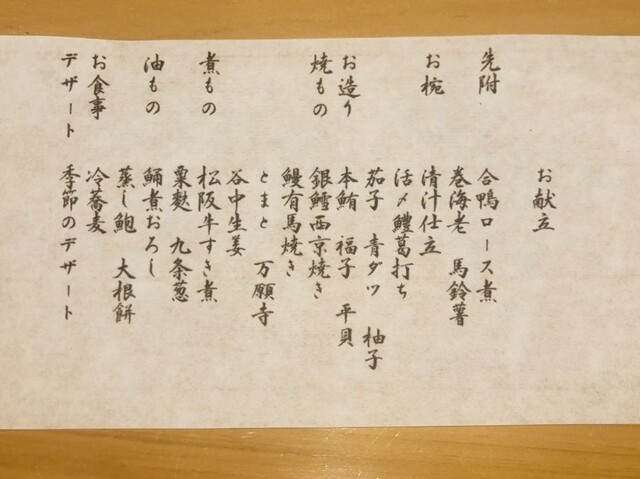 お献立
先附 合鴨ロース煮
巻海老 馬鈴薯
お椀 清汁仕立
活〆鱧葛打ち
茄子 青ダツ 柚子
お造り 本鮪 福子 平貝
焼もの 銀鱈西京焼き
鰻有馬焼き
とまと 万願寺
谷中生姜
煮もの 松阪牛すき煮
粟麩 九条葱
油もの 鮞煮おろし
蒸し鮑 大根餅
お食事 冷蕎麦
デザート 季節のデザート